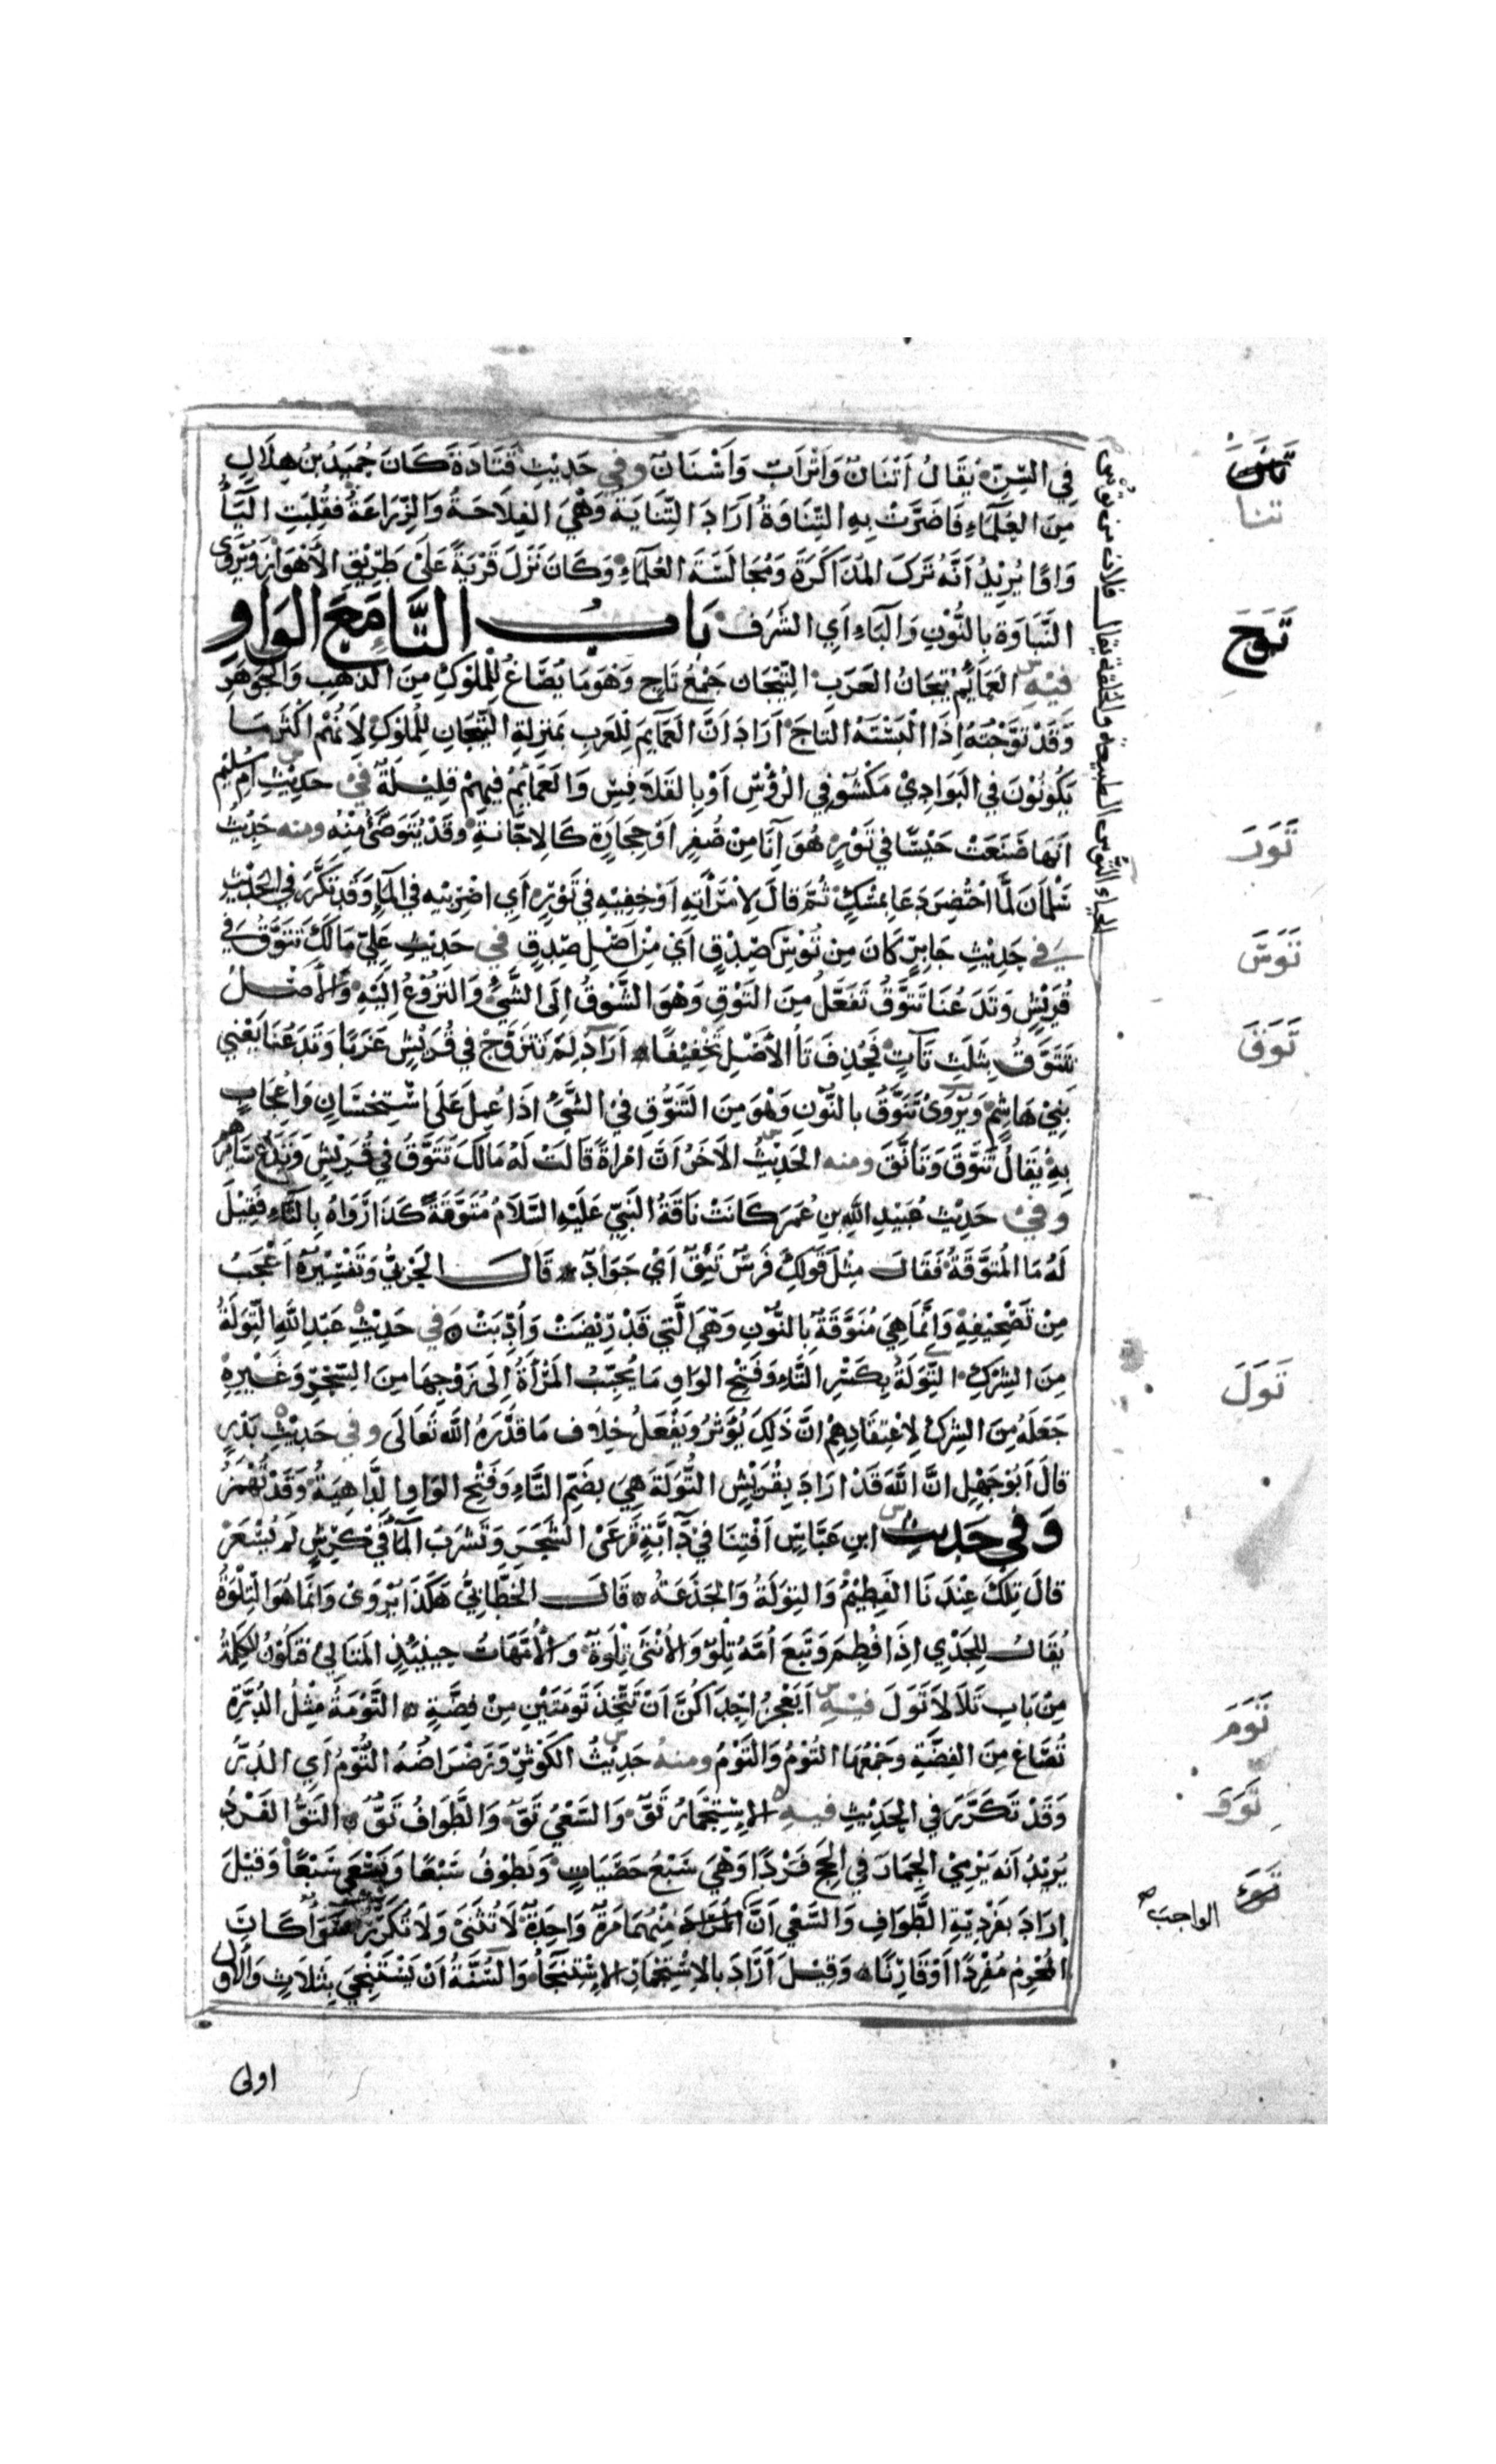 في السِّنّ يُقَالُ اَتْنَانٌ وَاَتْرَابٌ وَاَسْنَانٌ وفي حَدِيْثِ قَتَادَةَ كَانَ حُمَيْدُ بْنُ هِلَالٍ
مِنَ العُلَمَاءِ فَاَضَرَّتْ بِهِ التِّنَاوَةُ اَرَادَ التِّنَايَةَ وَهْيَ الفِلَاحَةُ وَالزِّرَاعَةُ فَقُلِبَتِ اليَاءُ
وَاوًا يُرِيْدُ اَنَّهُ تَرَكَ المُذَاكَرَةَ وَمُجَالَسَةَ العُلَمَاءِ وَكَانَ نَزَلَ قَرْيَةً عَلَى طَرِيْقِ الأَهْوَازِ وَيُرْوَى
النِّبَاوَة بِالنُّوْنِ وَالبَاءِ اَيِ الشَّرَف بَابُ التَّاءِ مَعَ الوَاوِ
فيه العَمَائِمُ تِيْجَانُ العَرَبِ التِّيْجَان جَمْعُ تَاجٍ وَهْوَ مَا يُصَاغُ لِلْمُلُوْكِ مِنَ الذَّهَبِ وَالجَوْهَرِ
وَقَدْ تَوَّجْتُهُ اِذَا اَلْبَسْتَهُ التَاجَ اَرَادَ اَنَّ العَمَائِمَ لِلْعَرَبِ بِمَنْزِلَةِ التِّيْجَانِ لِلْمُلُوكِ لِأَنَّهُمْ اَكْثَرُ مَا
يَكُونُوْنَ فِي البَوَادِيْ مَكْشُوْفِي الرُّؤُسِ اَوْ بِالقَلَانِسِ وَالعَمَائِمُ فِيهِمْ قَلِيْلَةٌ في حَدِيْثِ اُمِّ سُلَيْمٍ
اَنَّهَا صَنَعَتْ حَيْسًا فِي تَوْرٍ هُوَ اِنَاءٌ مِنْ صُفْرٍ اَوْ حِجَارَةٍ كَالاِجَّانَةِ وَقَدْ يُتَوَضَّأُ مِنْهُ ومنه حَدِيْثُ
سَلْمَانَ لَمَّا احْتُضِرَ دَعَا بِمِسْكٍ ثُمَّ قَالَ لِاِمْرَأَتِهِ اَوْخِفِيْهِ فِي تَوْرٍ اَيِ اضْرِبِيْهِ فِي المَاءِ وَقَدْ تَكَرَّرَ فِي الحَدِيْثِ
في حَدِيْثِ جَابِرٍ كَانَ مِن تُوْسِ صِدْقٍ اَيْ مِنْ اَصْلِ صِدْقٍ في حَدِيْثِ عَلِيٍّ مَالَكَ تَتَوَّقُ فِي
قُرَيْشٍ وَتَدَعُنَا تَتَوَّقُ تَفَعَّلُ مِنَ التَّوْقِ وَهْوَ الشَّوْقُ اِلَى الشَّيْءِ وَالنُّزُوْعُ اِلَيْهِ وَالأَصْلُ
تَتَتَوَّقُ بِثَلَثِ تَاءٍ فَحُذِفَ تَاءُ الأَصْلِ تَخْفِيْفًا اَرَادَ لِمَ تَتَزَوَّجُ فِي قُرَيْشٍ غَيْرِنَا وَتَدَعُنَا يَعْنِي
بَنِيْ هَاشِمٍ وَيُرْوَى تَنَوَّقُ بِالنُّونِ وَهْوَ مِنَ التَّنَوُّقِ فِي الشَّيْءِ اِذَا عُمِلَ عَلَى اسْتِحْسَانٍ وَاِعْجَابٍ
بِهِ يُقَالُ تَنَوَّقَ وَتَأَنَّقَ ومنه الحَدِيْثُ الآخَرُ اَنَّ امْرَاَةً قَالَتْ لَهُ مَالَكَ تَتَوَّقُ فِي قُرَيْشٍ وَتَدَعُ سَائِرَهُمْ
وفي حَدِيْثِ عُبَيْدِ اللهِ بنِ عُمَرَ كَانَتْ نَاقَةُ النَّبِيِّ عَلَيْهِ السَّلَامُ مُتَوَّقَةً كَذَا رَوَاهُ بِالتَّاءِ فَقِيْلَ
لَهُ مَا المُتَوَّقَةُ فَقَالَ مِثْلَ قَوْلِكَ فَرَسٌ تَئِقٌ اَيْ جَوَادٌ قَالَ الحَرْبِيُّ وَتَفْسِيْرُهُ اَعْجَبُ
مِنْ تَصْحِيْفِهِ وَاِنَّمَا هِيَ مُنَوَّقَةٌ بِالنُّونِ وَهْيَ الَّتِي قَدْ رِيْضَتْ وَاُدِّبَتْ في حَدِيْثِ عَبْدِ اللهِ التِّوَلَةُ
مِنَ الشِّرْكِ التِّوَلَةُ بِكَسْرِ التَّاءِ وَفَتْحِ الوَاوِ مَا يُحَبِّبُ المَرْأَةَ اِلَى زَوْجِهَا مِنَ السِّحْرِ وَغَيْرِهِ
جَعَلَهُ مِنَ الشِّرْكِ لِاِعْتِقَادِهِمْ اَنَّ ذَلِكَ يُؤَثِّرُ وَيَفْعَلُ خِلَافَ مَا قَدَّرَهُ اللهُ تَعَالَى وفي حَدِيْثِ بَدْرٍ
قَالَ اَبُوْ جَهْلٍ اِنَّ اللهَ قَدْ اَرَادَ بِقُرَيْشٍ التُّوَلَةَ هِيَ بِضَمِّ التَّاءِ وَفَتْحِ الوَاوِ الدَّاهِيَةُ وَقَدْ تُهْمَزُ
وَفي حَدِيث ابنِ عَبَّاسٍ اَفْتِنَا فِيْ دَابَّةٍ تَرْعَى الشَّجَرَ وَتَشْرَبُ المَاءَ فِي كَرِشٍ لَمْ تُثْغَرْ
قَالَ تِلْكَ عِنْدَنَا الفَطِيْمُ وَالتِوَلَةُ وَالجَذَعَةُ قَالَ الخَطَّابِيُّ هَكَذَا يُرْوَى وَاِنَّمَا هُوَ التِّلْوَةُ
يُقَالُ لِلجَدْيِ اِذَا فُطِمَ وَتَبِعَ اُمَّهُ تِلْوٌ وَالأُنْثَى تِلْوَةٌ وَالأُمَّهَاتُ حِيْنَئِذٍ المَتَالِيْ فَتَكُوْنُ الكَلِمَةُ
مِنْ بَابِ تَلَا لَا تَوَلَ فيه اَيَعْجِزُ اِحْدَاكُنَّ اَنْ تَتَّخِذَ تُومَتَيْنِ مِنْ فِضَّةٍ التُّوْمَةُ مِثْلُ الدُّرَّةِ
تُصَاغُ مِنَ الفِضَّةِ وَجَمْعُهَا التُّوْمُ وَالتُّوَمُ ومنه حَدِيْثُ الكَوْثَرِ وَرَضْرَاضُهُ التُّوْمُ اَيِ الدُّرُّ
وَقَدْ تَكَرَّرَ فِي الحَدِيْثِ فيه الاِسْتِجْمَارُ تَوٌّ وَالسَّعْيُ تَوٌّ وَالطَّوَافُ تَوٌّ التَوُّ الفَرْدُ
يُرِيْدُ اَنَّهُ يَرْمِيْ الجِمَارَ فِي الحَجِّ فَرْدًا وَهْيَ سَبْعُ حَصَيَاتٍ وَيَطُوْفُ سَبْعًا وَيَسْعَى سَبْعًا وَقِيْلَ
اَرَادَ بِفَرْدِيَّةِ الطَّوَافِ وَالسَّعْيِ اَنَّ المُرَادَ مِنْهُمَا مَرَّةٌ وَاحِدَةٌ لَا تُثَنَّى وَلَا تُكَرَّرُ سَوَاءٌ كَانَ
المُحْرِمُ مُفْرِدًا اَوْ قَارِنًا وَقِيْلَ اَرَادَ بِالاِسْتِجْمَارِ الاِسْتِنْجَاءُ وَالسُّنَّةُ اَنْ يَسْتَنْجِيَ بِثَلَاثٍ وَالأَوَّلُ
اولى
تنا
تَوَجَ
تَوَرَ
تَوَسَ
تَوَقَ
تَوَلَ
تَوَمَ
تَوَوَ
الواجب